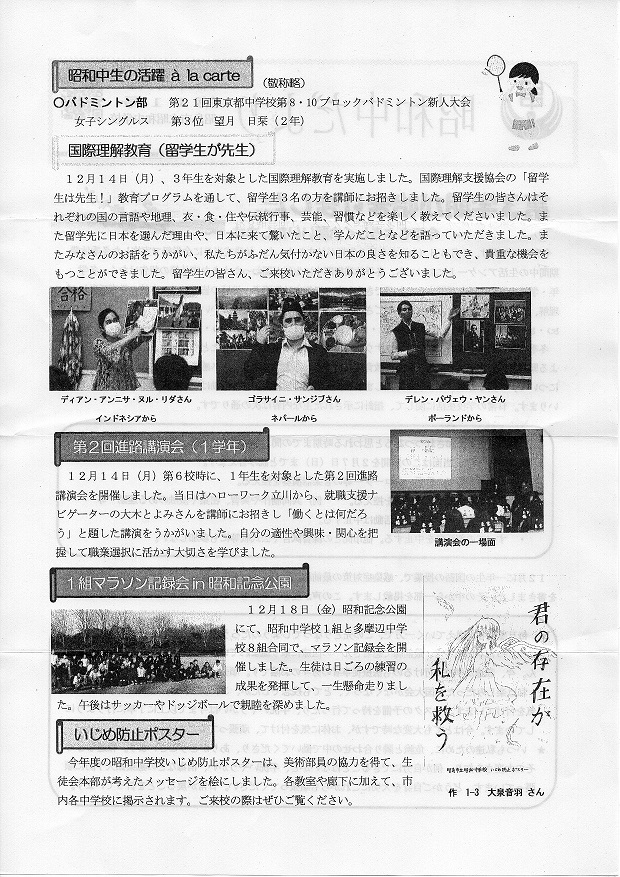 昭和中生の活躍 à la carte (敬称略)
○バドミントン部 第21回東京都中学校第8・10ブロックバドミントン新人大会
女子シングルス 第3位 望月 日菜(2年)
国際理解教育(留学生が先生)
12月14日(月)、3年生を対象とした国際理解教育を実施しました。国際理解支援協会の「留学
生は先生!」教育プログラムを通して、留学生3名の方を講師にお招きしました。留学生の皆さんはそ
れぞれの国の言語や地理、衣・食・住や伝統行事、芸能、習慣などを楽しく教えてくださいました。ま
た留学先に日本を選んだ理由や、日本に来て驚いたこと、学んだことなどを語っていただきました。ま
たみなさんのお話をうかがい、私たちがふだん気付かない日本の良さを知ることもでき、貴重な機会を
もつことができました。留学生の皆さん、ご来校いただきありがとうございました。
合格
ディアン・アンニサ・ヌル・リダさん
インドネシアから
ゴラサイニ・サンジブさん
ネパールから
デレン・パヴェウ・ヤンさん
ポーランドから
第2回進路講演会(1学年)
12月14日(月)第6校時に、1年生を対象とした第2回進路
講演会を開催しました。当日はハローワーク立川から、就職支援ナ
ビゲーターの大木とよみさんを講師にお招きし「働くとは何だろ
う」と題した講演をうかがいました。自分の適性や興味・関心を把
握して職業選択に活かす大切さを学びました。
講演会の一場面
1組マラソン記録会 in 昭和記念公園
12月18日(金)昭和記念公園
にて、昭和中学校1組と多摩辺中学
校8組合同で、マラソン記録会を開
催しました。生徒は日ごろの練習の
成果を発揮して、一生懸命走りまし
た。午後はサッカーやドッジボールで親睦を深めました。
君の存在が
私を救う
昭島市立昭和中学校 いじめ防止ポスター
作 1-3 大泉音羽 さん
いじめ防止ポスター
今年度の昭和中学校いじめ防止ポスターは、美術部員の協力を得て、生
徒会本部が考えたメッセージを絵にしました。各教室や廊下に加えて、市
内各中学校に掲示されます。ご来校の際はぜひご覧ください。